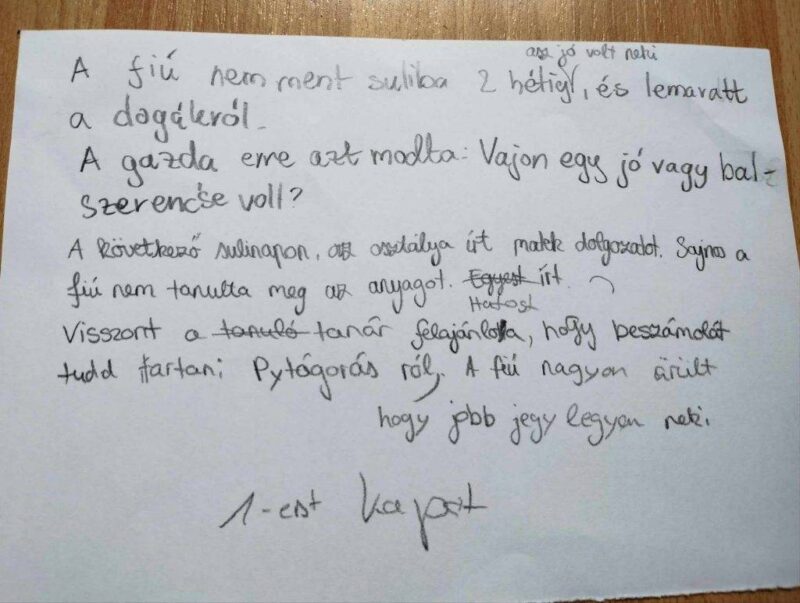 asz jó volt neki
A fiú nem ment suliba 2 hétig, és lemaratt
a dogákról.
A gazda erre azt modta: Vajon egy jó vagy bal-
szerencse volt?
A következő sulinapon, az osztálya írt matek dolgozatot. Sajnos a
fiú nem tanulta meg az anyagot. Egyest írt.
Hatost
Visszont a tanuló tanár felajánlota, hogy beszámolót
tudd tartani Pytágorás ról, A fiú nagyon örült
hogy jobb jegy legyen neki.
1-est kapott